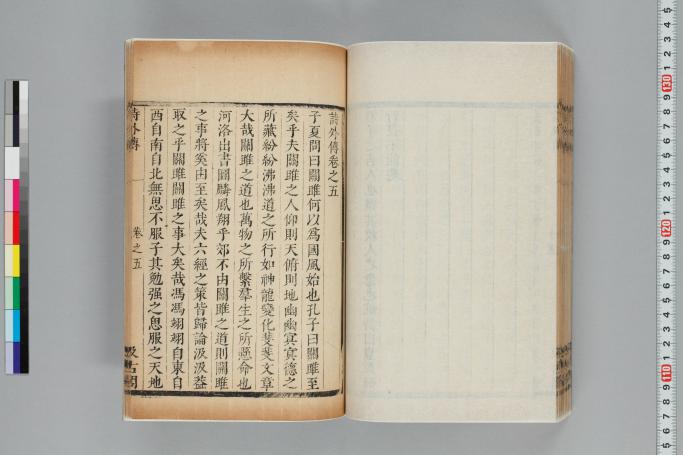 詩外傳卷之五
子夏問曰關雎何以爲國風始也孔子曰關雎至
矣乎夫關雎之人仰則天俯則地幽幽冥冥德之
所藏紛紛沸沸道之所行如神龍變化斐斐文章
大哉關雎之道也萬物之所繫羣生之所懸命也
河洛出書圖麟鳳翔乎郊不由關雎之道則關雎
之事將奚由至矣哉夫六經之策皆歸論汲汲葢
取之乎關雎關雎之事大矣哉馮馮翊翊自東自
西自南自北無思不服子其勉强之思服之天地
詩外傳
卷之五
汲古閣
130
120
110